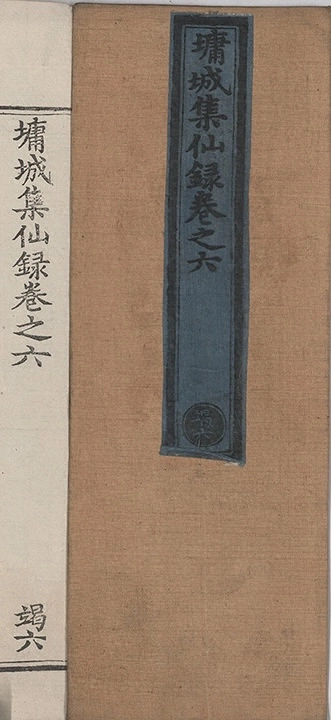 墉城集仙録卷之六
竭六
墉城集仙録卷之六
竭六